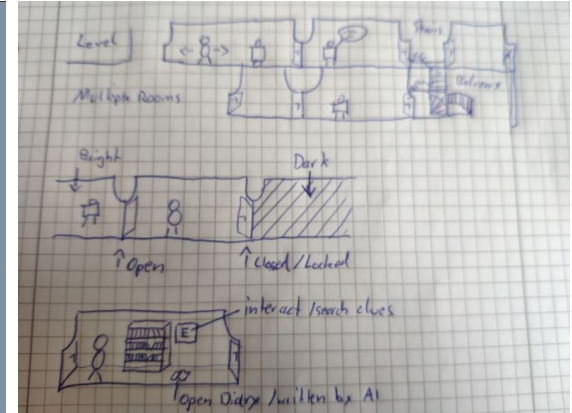 Level
E
Stairs
Multiple Rooms
Bright
Dark
Open
Closed/Locked
interact /search clues
E
Open Diary /written by AI